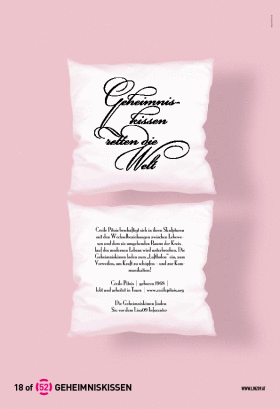 Geheimnis-
kissen
retten die
Welt
Cecile Pitois beschäftigt sich in ihren Skulpturen
mit den Wechselbeziehungen zwischen Lebewe-
sen und dem sie umgebenden Raum: der Kreis-
lauf des modernen Lebens wird unterbrochen. Die
Geheimniskissen laden zum „Luftholen“ ein, zum
Verweilen, um Kraft zu schöpfen – und zur Kom-
munikation!
Cecile Pitois | geboren 1968 |
lebt und arbeitet in Tours | www.cecilepitois.org
Die Geheimniskissen finden
Sie vor dem Linz09 Infocenter
18 of {52} GEHEIMNISKISSEN
WWW.LINZ09.AT